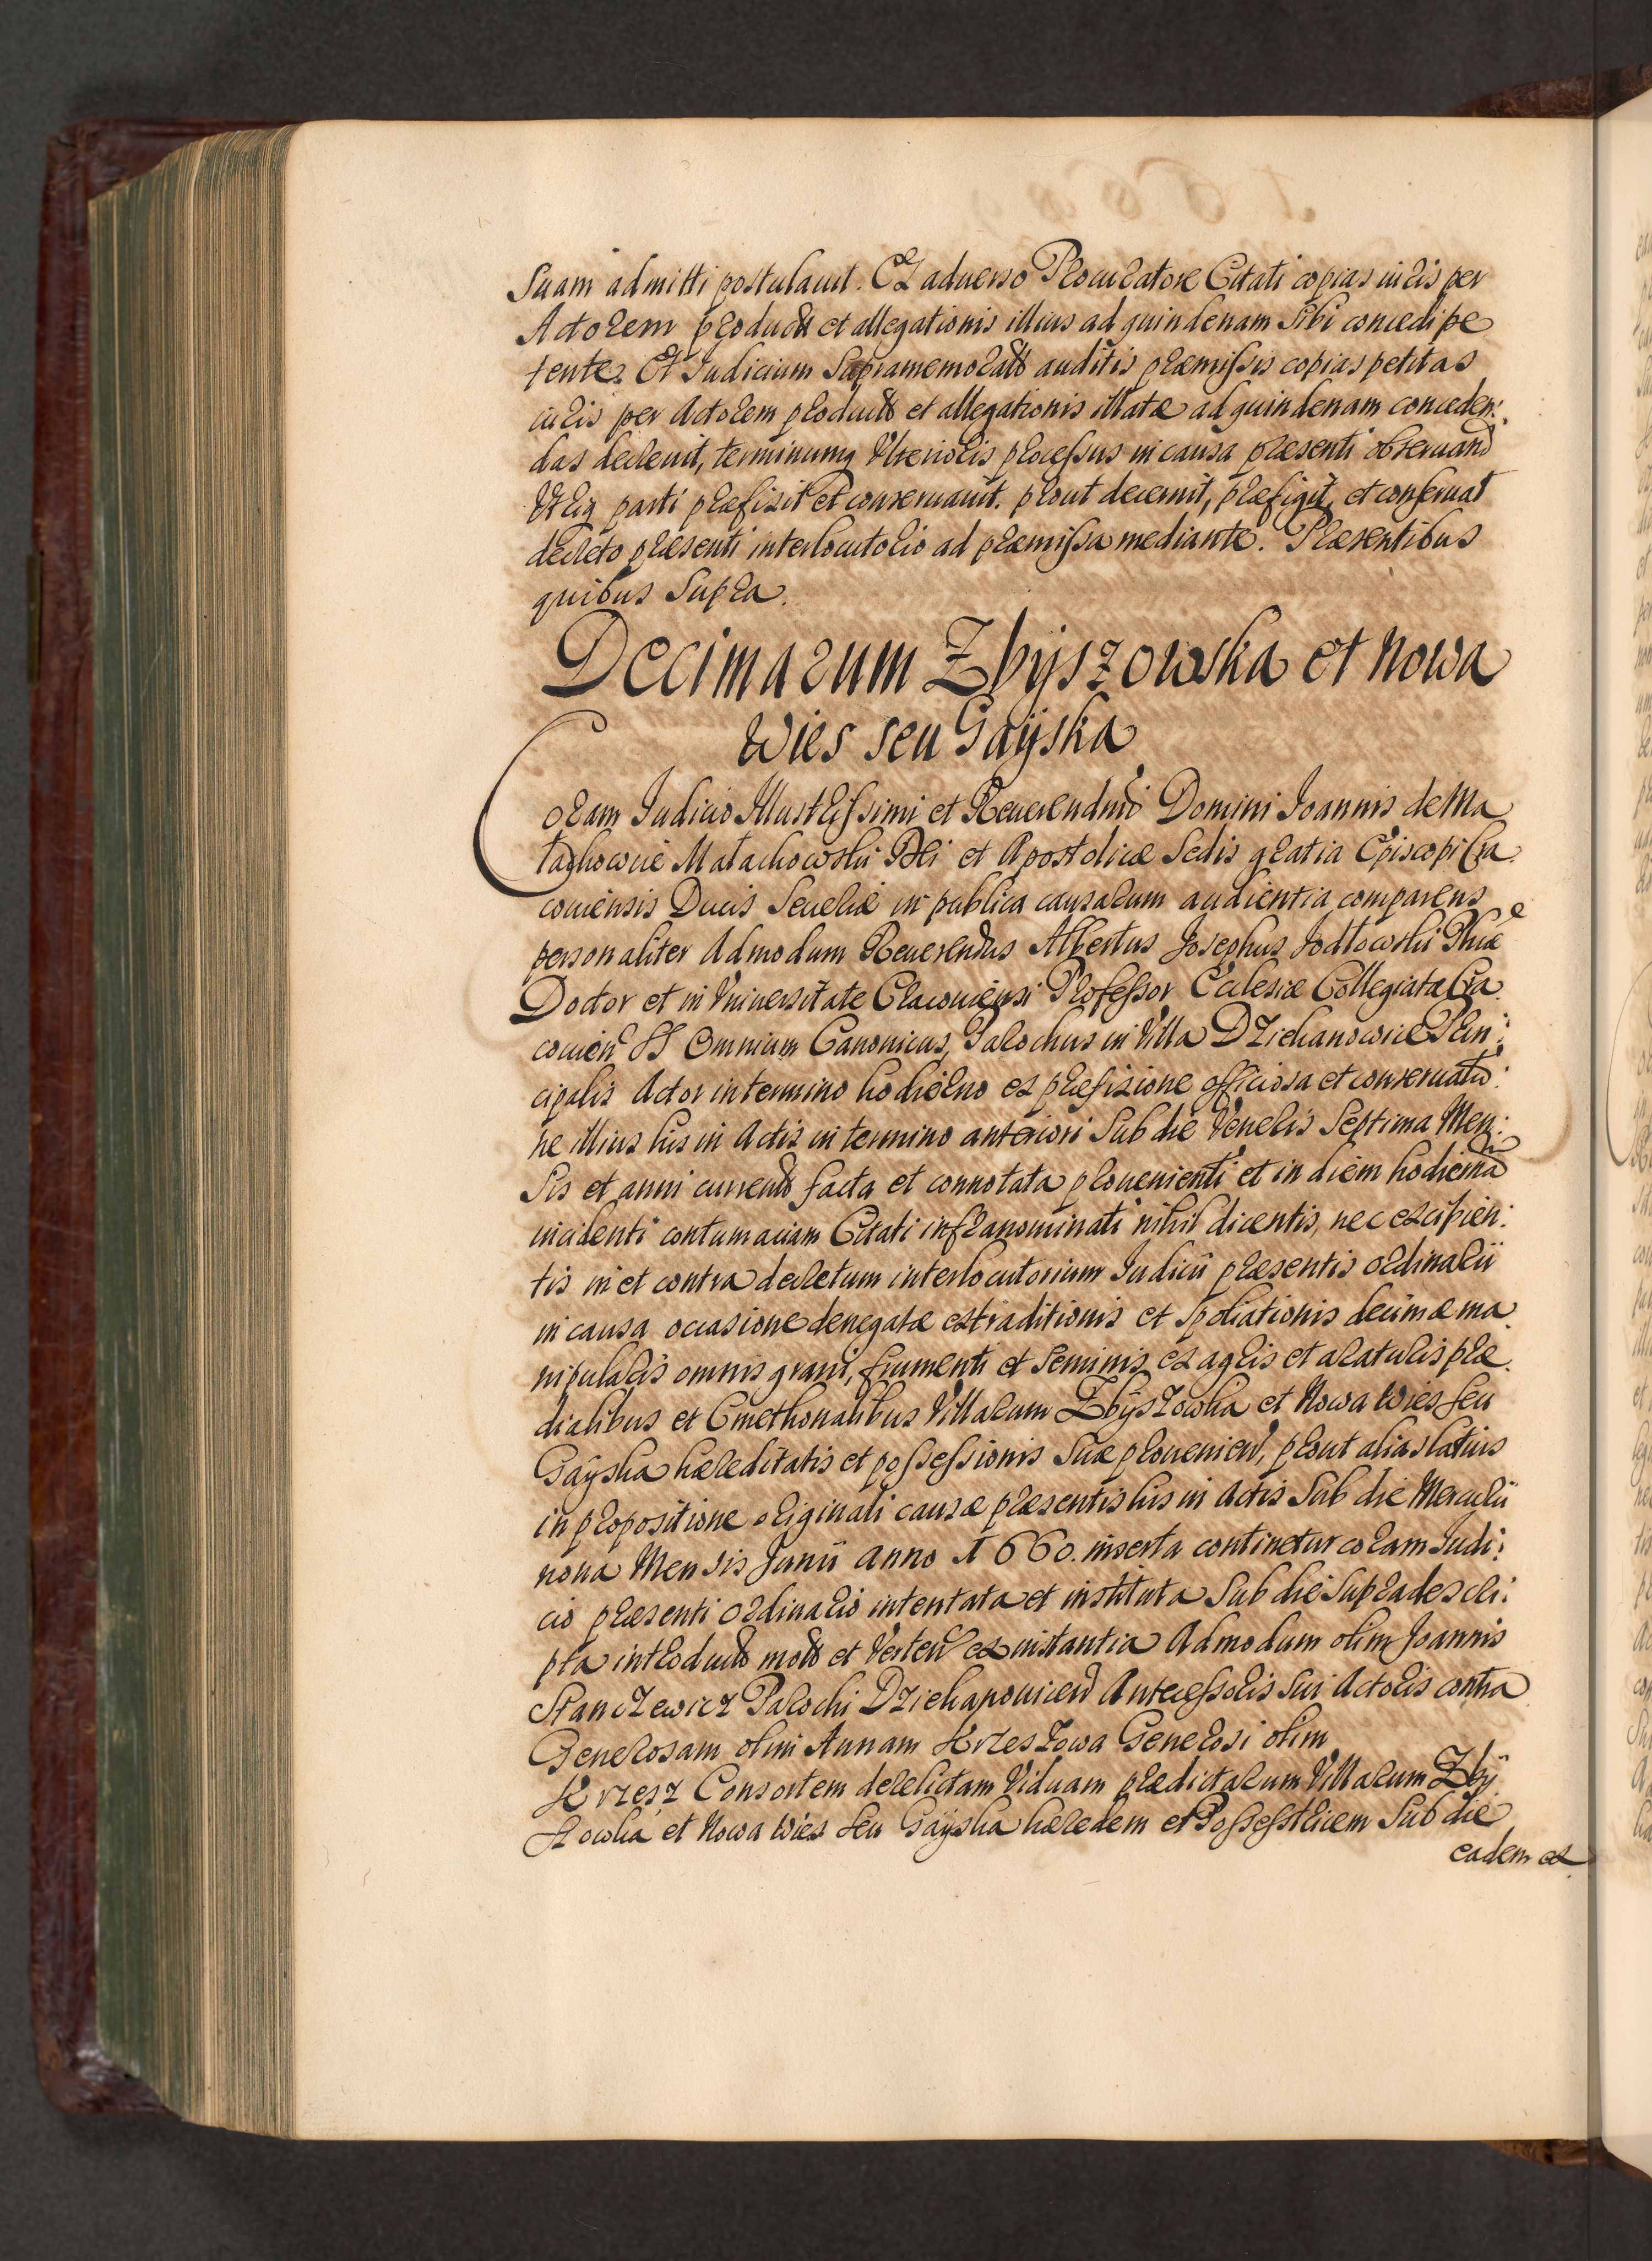 Suam admitti postulauit. Ex aduerso Procuratore Citati copias iuris per
Actorem producti et allegationis illius ad quindenam Sibi concedi pe
tente. Et Iudicium Supramemoratu auditis præmissis copias petitas
iuris per Actorem producti et allegationis illatæ ad quindenam conceden:
das decreuit, terminumq Vlterioris processus in causa præsenti obseruand
Vtriq parti præfixit et conseruauit. prout decernit, præfigit, et conseruat
decreto præsenti interlocutorio ad præmissa mediante. Præsentibus
quibus Supra.
Decimarum Zbÿszowska et Nowa
Wies seu Gaÿska
Coram Iudicio Illustrissimi et Reuerendmi Domini Joannis de Ma
łachowice Małachowski Dei et Apostolicæ Sedis gratia Episcopi Cra
couiensis Ducis Seueriæ in publica causarum audientia comparens
personaliter Admodum Reuerendus Albertus Josephus Jodłowski Phiæ
Doctor et in Vniuersitate Cracouiensi Professor Ecclesiæ Collegiatæ Cra
couien SS Omnium Canonicus, Parochus in Villa Dziekanowice Prin:
cipalis Actor in termino hodierno ex præfixione officiosa et conseruatio:
ne illius his in Actis in termino anteriori Sub die Veneris Septima Men:
Sis et anni currentis facta et connotata prouenienti et in diem hodierna
incidenti contumaciam Citati infranominati nihil dicentis, nec excipien:
tis in et contra decretum interlocutorium Iudicii præsentis ordinarii
in causa occasione denegatæ extraditionis et spoliationis decimæ ma
nipularis omnis grani, frumenti et seminis ex agris et araturis præ
dialibus et Cmethonalibus Villarum Zbÿszowka et Nowa Wies seu
Gaÿska hæreditatis et possessionis Suæ prouenien, prout alias latius
in propositione originali causæ præsentis his in Actis Sub die Mercurii
nona Mensis Junii Anno 1660. inserta continetur coram Iudi:
cio præsenti ordinario intentata et instituta Sub die Supradescri:
pta introducta mota et Verten ex instantia Admodum olim Joannis
Stanczewicz Parochi Dziekanouicen Antecessoris Sui Actoris contra
Generosam olim Annam Krzeszowa Generosi olim
Krzesz Consortem derelictam Viduam prædictarum Villarum Zbÿ
szowka et Nowa Wies seu Gaÿska hæredem et Possestricem Sub die
eadem ex